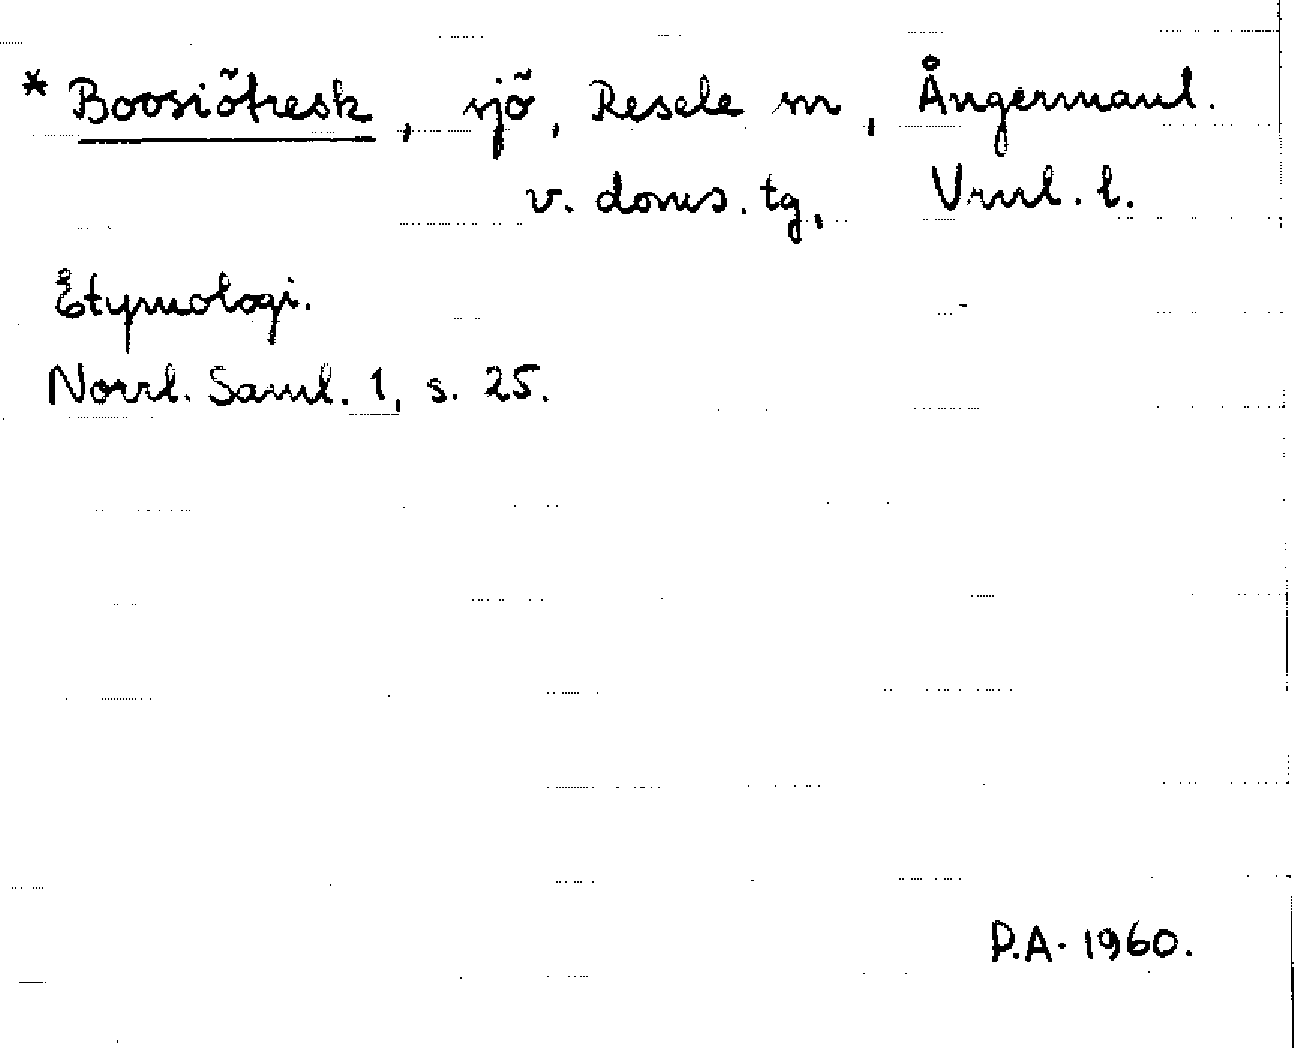 * Boosiötresk, sjö, Resele sn, Ångermanl.
v. doms. tg, Vnrl. l.
Etymologi.
Norrl. Saml. 1, s. 25.
P.A. 1960.